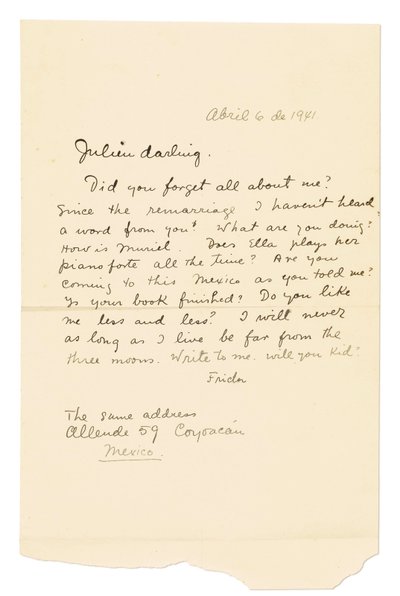 Abril 6 de 1941
Julien darling.
Did you forget all about me?
Since the remarriage I haven't heard
a word from you! What are you doing?
How is Muriel. Does Ella plays her
pianoforte all the time? Are you
coming to this Mexico as you told me?
Is your book finished? Do you like
me less and less? I will never
as long as I live be far from the
three moons. Write to me. will you Kid?
Frida
The same address
Allende 59 Coyoacán
Mexico.